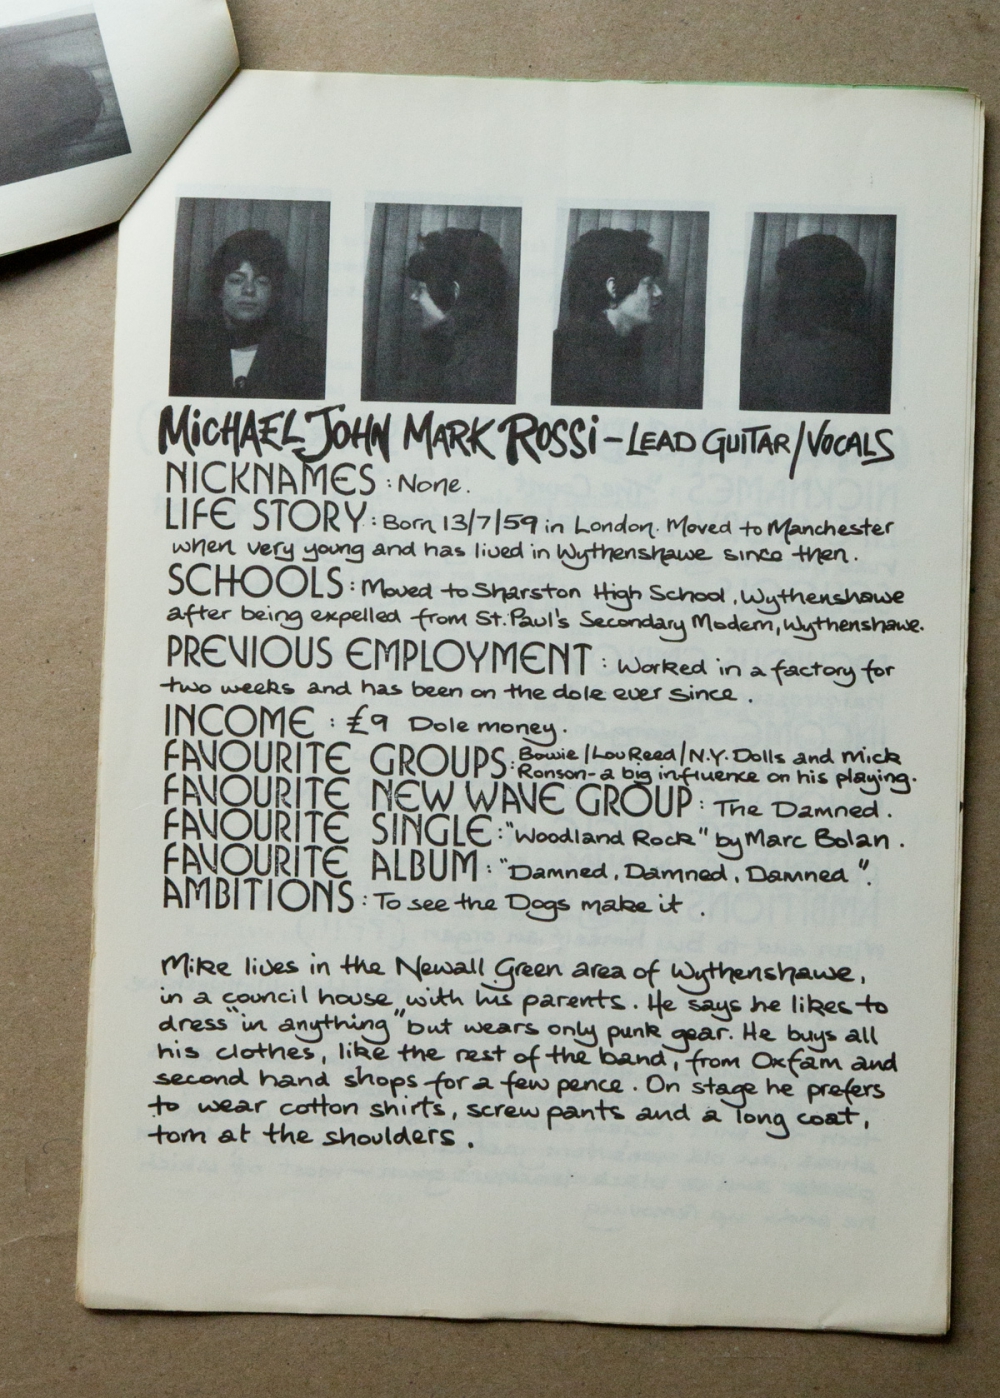 MICHAEL JOHN MARK ROSSI – LEAD GUITAR/VOCALS
NICKNAMES : None.
LIFE STORY : Born 13/7/59 in London. Moved to Manchester
when very young and has lived in Wythenshawe since then.
SCHOOLS : Moved to Sharston High School, Wythenshawe
after being expelled from St. Paul's Secondary Modern, Wythenshawe.
PREVIOUS EMPLOYMENT : Worked in a factory for
two weeks and has been on the dole ever since.
INCOME : £9 Dole money.
FAVOURITE GROUPS : Bowie / Lou Reed / N.Y. Dolls and Mick
Ronson – a big influence on his playing.
FAVOURITE NEW WAVE GROUP : The Damned.
FAVOURITE SINGLE : "Woodland Rock" by Marc Bolan.
FAVOURITE ALBUM : "Damned, Damned, Damned".
AMBITIONS : To see the Dogs make it.
Mike lives in the Newall Green area of Wythenshawe,
in a council house with his parents. He says he likes to
dress "in anything" but wears only punk gear. He buys all
his clothes, like the rest of the band, from Oxfam and
second hand shops for a few pence. On stage he prefers
to wear cotton shirts, screw pants and a long coat,
torn at the shoulders.